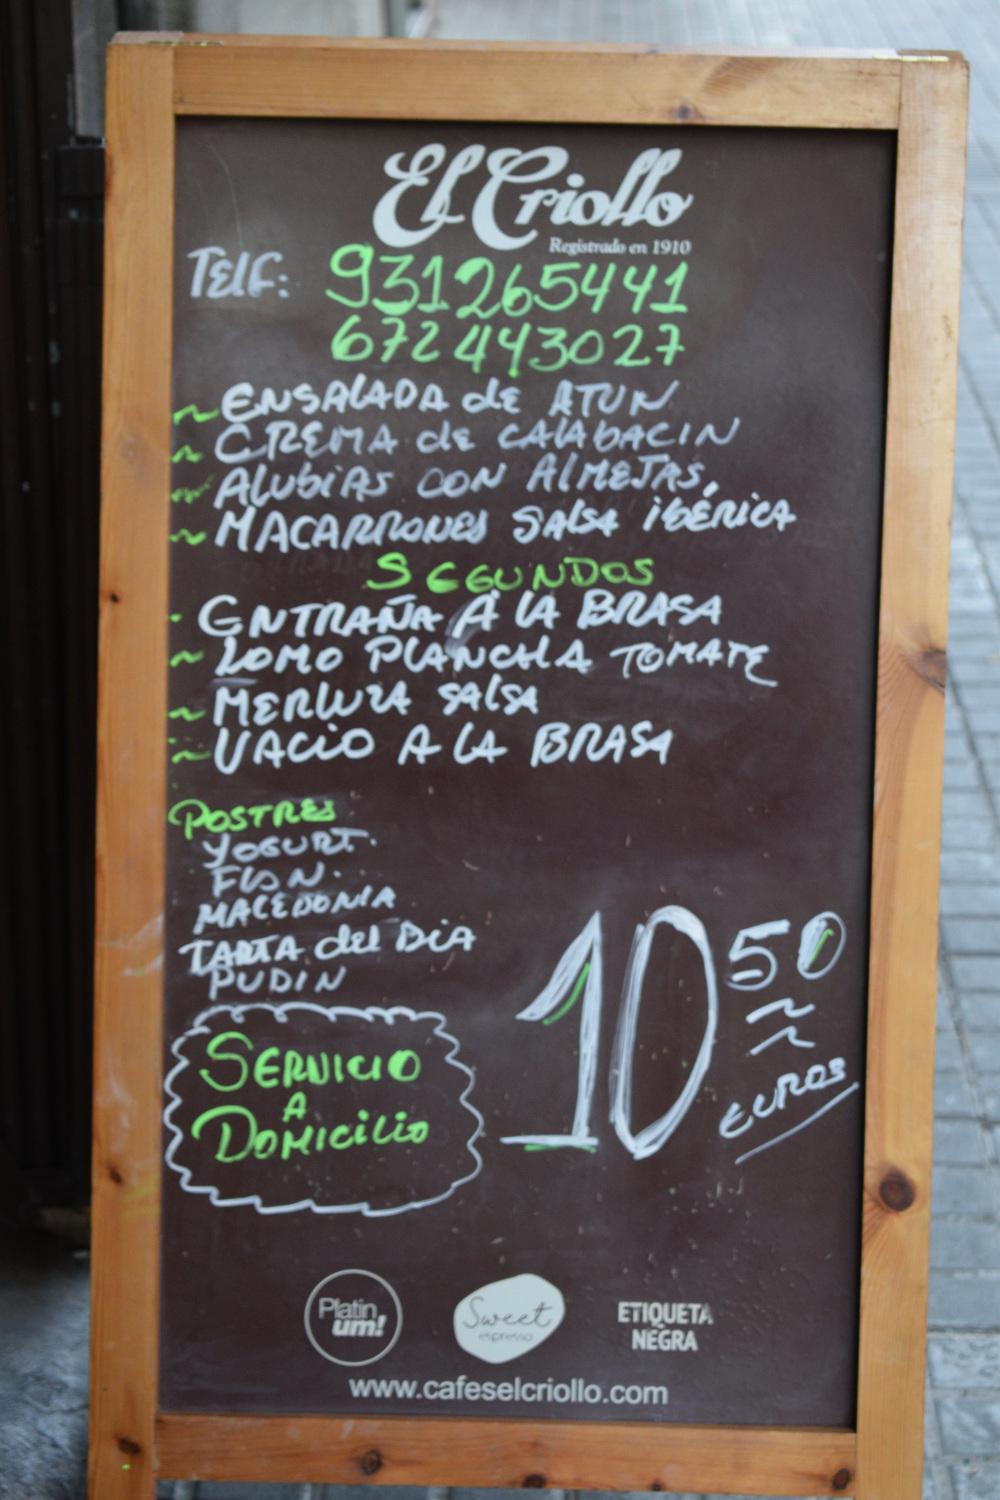 El Criollo
Registrado en 1910
TElF: 931265441
672443027
~ ENSALADA de ATUN
~ CREMA de CALABACIN
~ AlubiAS CON AlMEJAS,
~ MACARRONES SAlSA ibÉRICA
SEGUNDOS
- ENTRAÑA A LA BRASA
~ LOMO PLANCHA TOMATE
~ MERLUZA SAlSA
~ VACiO A LA BRASA
POSTRES
YOGURT.
FLAN.
MACEDONIA
TARTA del DiA
PUDIN
10 50
EUROS
SERVICIO
A
DOMiCiLiO
Platin
um!
Sweet
espresso
ETIQUETA
NEGRA
www.cafeselcriollo.com